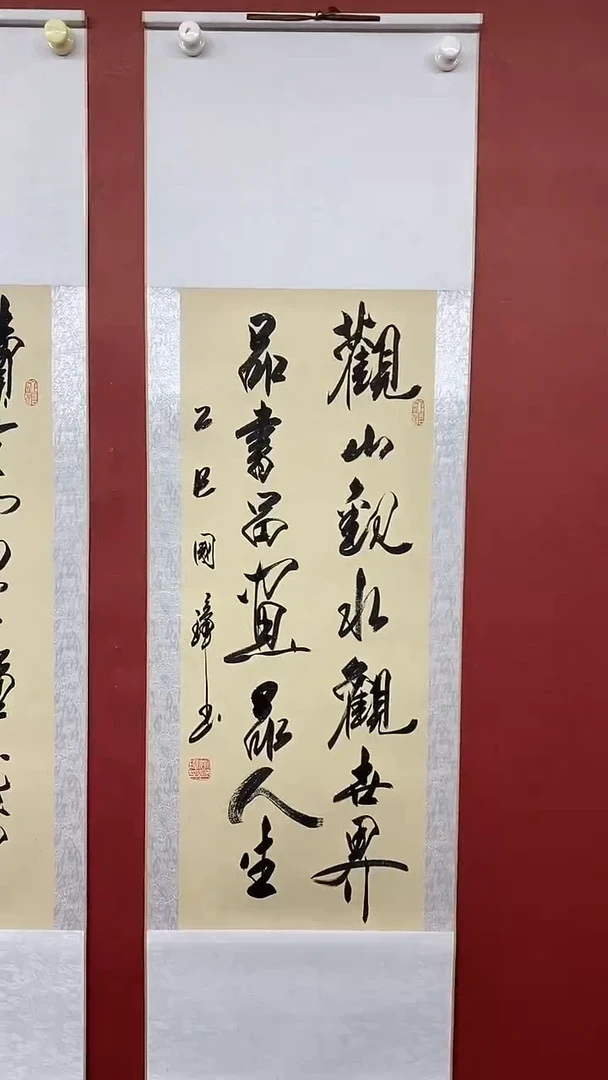 觀山觀水觀世界
品書品畫品人生
乙巳國璋書